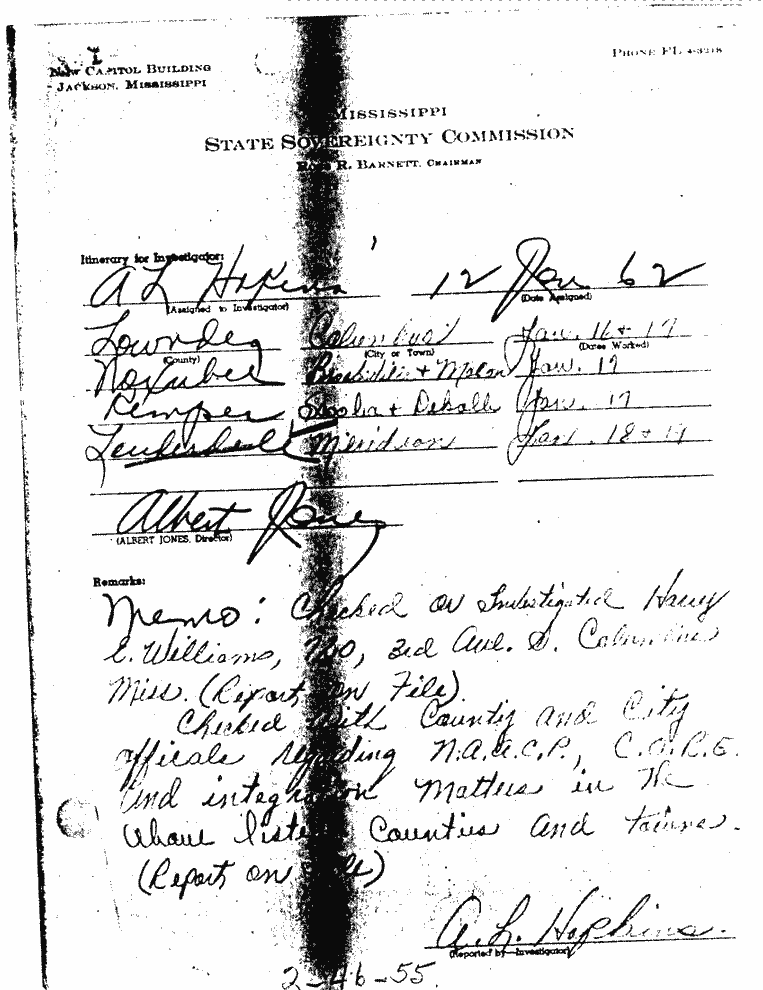 New Capitol Building
Jackson, Mississippi
Phone FL 4-3218
Mississippi
State Sovereignty Commission
Ross R. Barnett, Chairman
Itinerary for Investigator:
A L Hopkins 12 Jan 62
(Assigned to Investigator) (Date Assigned)
Lowndes Columbus Jan. 16 & 17
(County) (City or Town) (Dates Worked)
Noxubee Brooksville & Macon Jan. 17
Kemper Scooba & Dekalb Jan. 17
Lauderdale Meridian Jan. 18 & 19
Albert Jones
(ALBERT JONES, Director)
Remarks:
Memo: Checked or Investigated Harvey
E. Williams, 3rd Ave. S. Columbus
Miss. (Report on File).
Checked with County and City
officals regarding N.A.A.C.P., C.O.R.E.
and integration Matters in The
above listed Counties and towns.
(Report on File)
A. L. Hopkins.
(Reported by—Investigator)
2-46-55